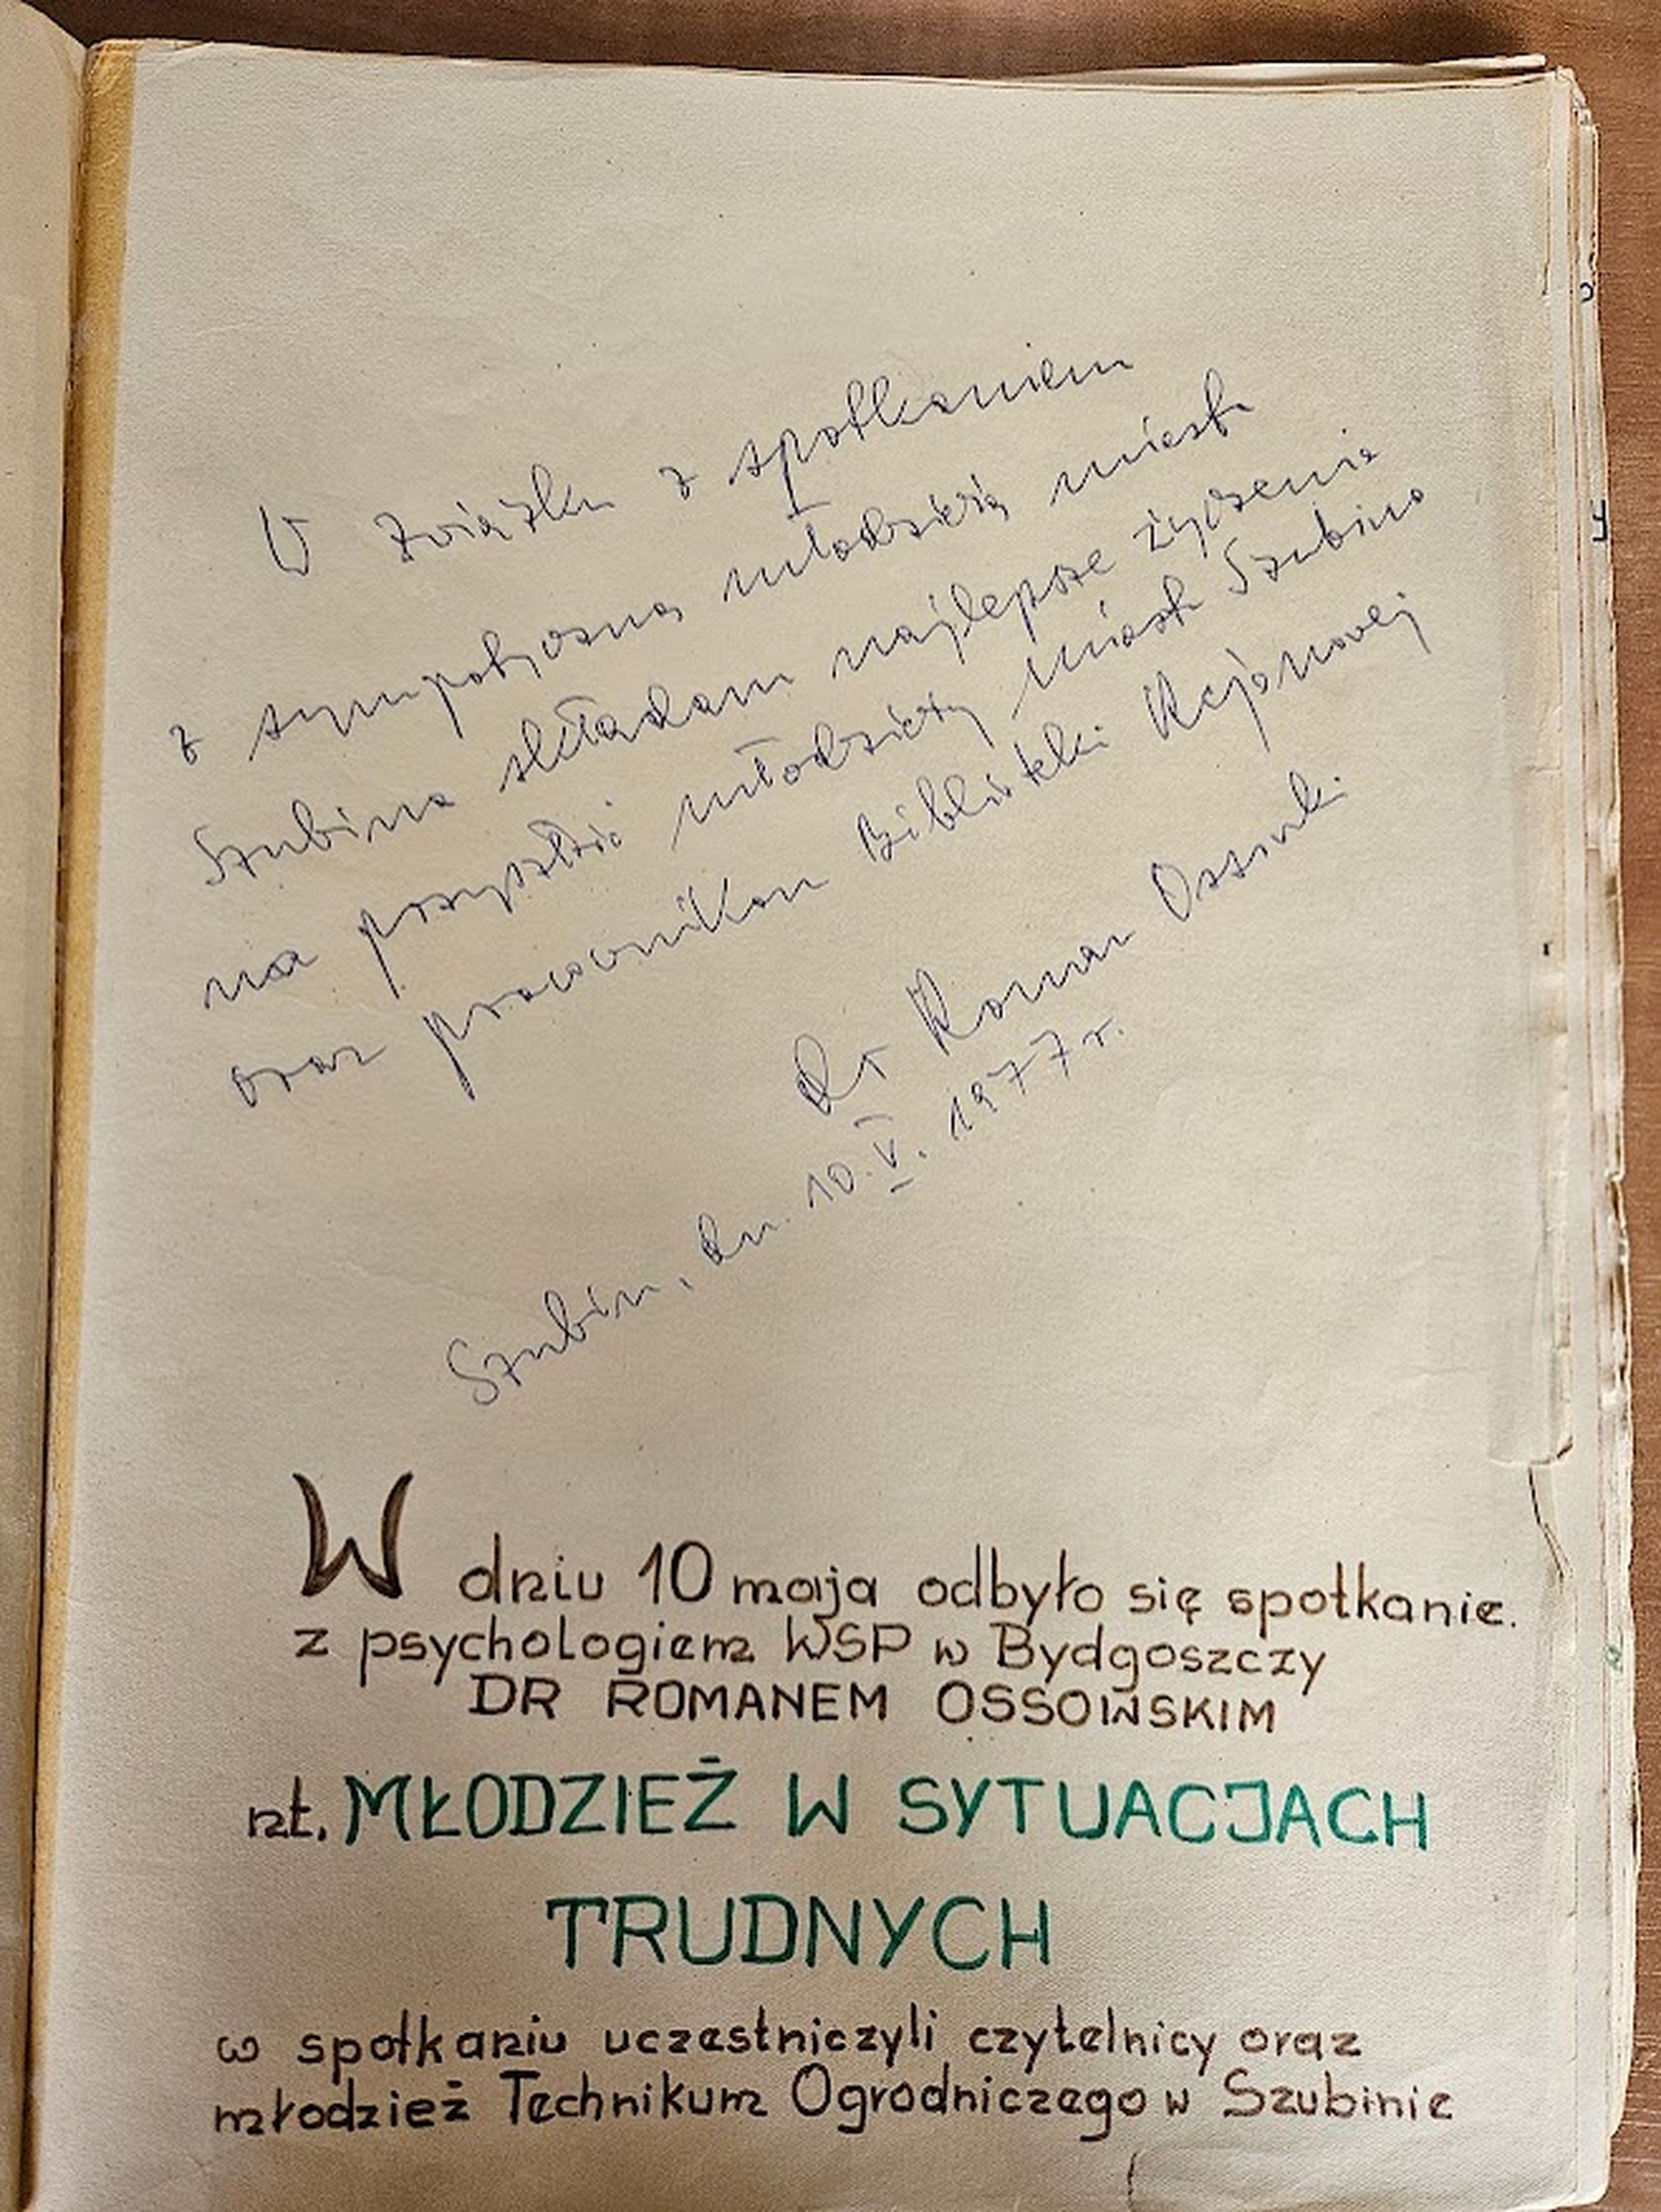 W związku z spotkaniem
z sympatyczną młodzieżą miasta
Szubina składam najlepsze życzenia
na przyszłość młodzieży miasta Szubina
oraz pracownikom Biblioteki Rejonowej
Dr Roman Ossowski
Szubin, dn. 10.V.1977r.
W dniu 10 maja odbyło się spotkanie.
z psychologiem WSP w Bydgoszczy
DR ROMANEM OSSOWSKIM
nt. MŁODZIEŻ W SYTUACJACH
TRUDNYCH
w spotkaniu uczestniczyli czytelnicy oraz
młodzież Technikum Ogrodniczego w Szubinie